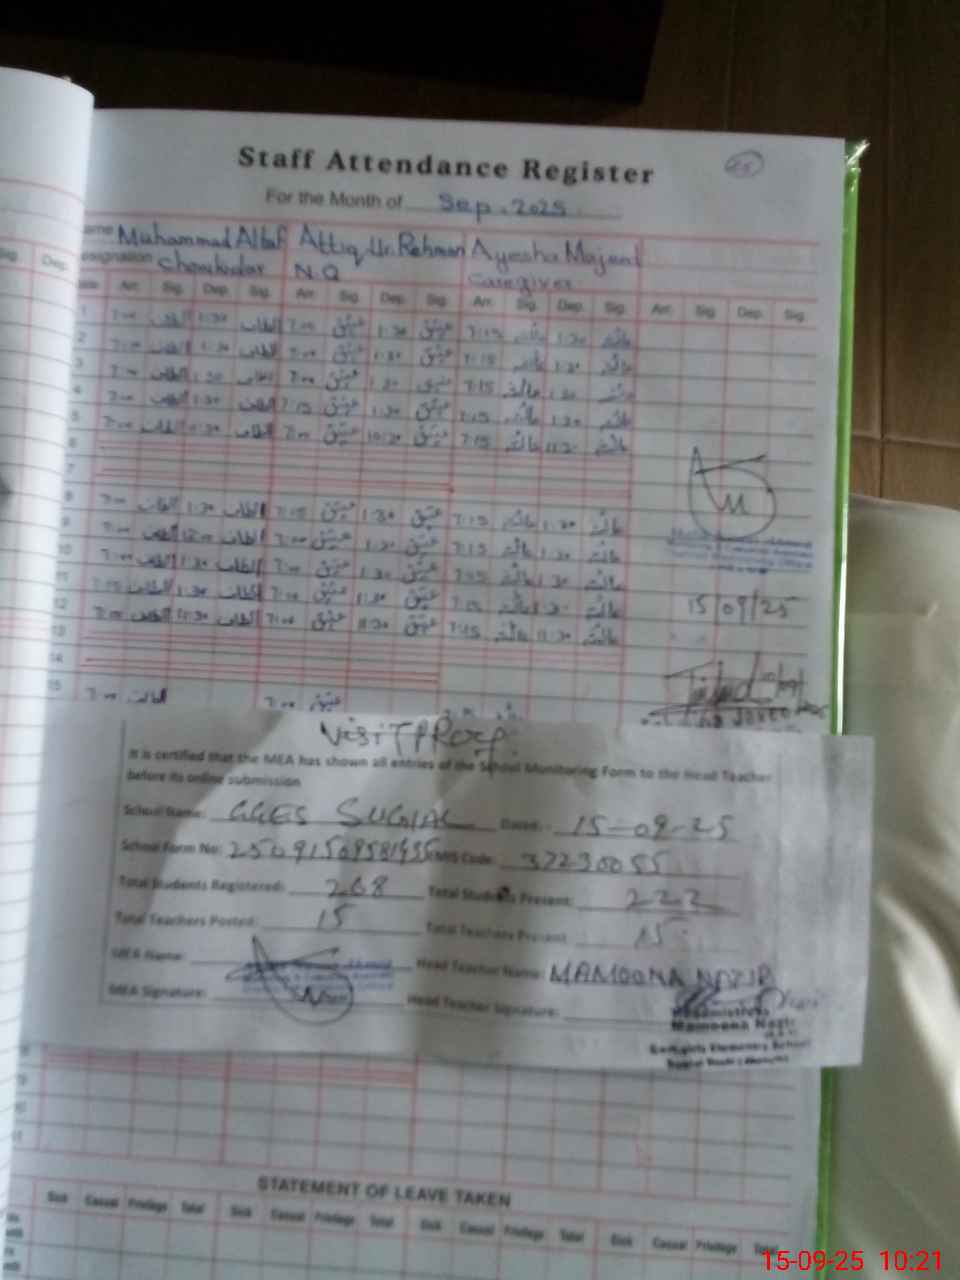 Staff Attendance Register
25
For the Month of Sep. 2025
Name Muhammad Altaf Attiq Ur Rehman Ayesha Majeed
Designation Chowkidar N.Q Caregiver
Sig. Dep.
Arr. Sig. Dep. Sig. Arr. Sig. Dep. Sig. Arr. Sig. Dep. Sig. Arr. Sig. Dep. Sig.
1 7:00 الطاف 1:30 الطاف 7:00 عتیق 1:30 عتیق 7:15 عائشہ 1:30 عائشہ
2 7:00 الطاف 1:30 الطاف 7:00 عتیق 1:30 عتیق 7:15 عائشہ 1:30 عائشہ
3 7:00 الطاف 1:30 الطاف 7:00 عتیق 1:30 عتیق 7:15 عائشہ 1:30 عائشہ
4 7:00 الطاف 1:30 الطاف 7:15 عتیق 1:30 عتیق 7:15 عائشہ 1:30 عائشہ
5 7:00 الطاف الطاف 7:00 عتیق عتیق 7:15 عائشہ 11:30 عائشہ
6
7
8 7:00 الطاف 1:30 الطاف 7:15 عتیق 1:30 عتیق 7:15 عائشہ 1:30 عائشہ
9 7:00 الطاف الطاف 7:00 عتیق 1:30 عتیق 7:15 عائشہ 1:30 عائشہ
10 7:00 الطاف 1:30 الطاف 7:00 عتیق 1:30 عتیق 7:15 عائشہ 1:30 عائشہ
11 7:15 الطاف 1:30 الطاف 7:00 عتیق 1:30 عتیق 7:15 عائشہ 1:30 عائشہ
15/09/25
12 7:00 الطاف 11:30 الطاف 7:00 عتیق 11:30 عتیق 7:15 عائشہ 11:30 عائشہ
13
14
15 7:00 الطاف 7:00 عتیق
VISIT PROOF
It is certified that the MEA has shown all entries of the School Monitoring Form to the Head Teacher
before its online submission
School Name: GGES SUGIAL Dated: 15-09-25
School Form No: EMIS Code: 37230055
Total Students Registered: 268 Total Students Present: 222
Total Teachers Posted: 15 Total Teachers Present: 15
MEA Name: Head Teacher Name: MAMOONA NAZIR
MEA Signature: Head Teacher Signature:
Headmistress
Mamoona Nazir
Govt. Girls Elementary School
STATEMENT OF LEAVE TAKEN
Sick Casual Privilege Total Sick Casual Privilege Total Sick Casual Privilege Total Sick Casual Privilege Total
15-09-25 10:21